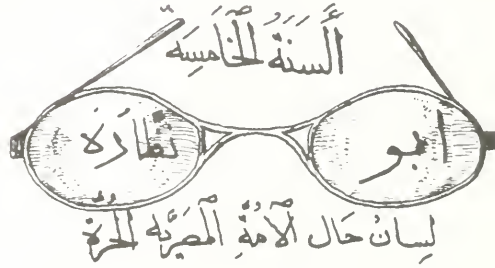 السَنَةُ الْخَامِسَة
ابو نظارَه
لِسانُ حَال الْأُمَّةِ الْمَصْرِيَّه الْحُرَّة